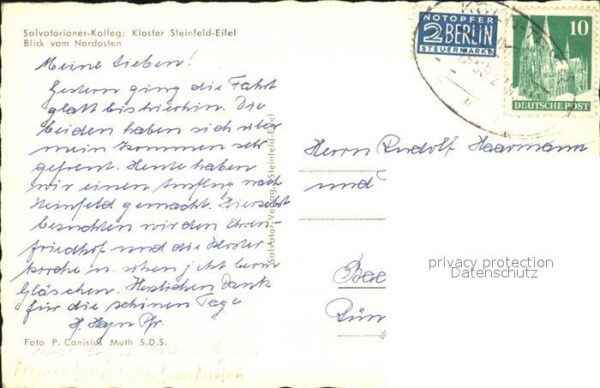 Salvatorianer-Kolleg: Kloster Steinfeld-Eifel
Blick vom Nordosten
Meine Lieben!
Gestern ging die Fahrt
glatt bis hierhin. Die
beiden haben sich über
mein Kommen sehr
gefreut. Heute haben
wir einen Ausflug nach
Steinfeld gemacht. Hierselbst
besuchten wir den Ehren-
friedhof und die Kloster-
kirche u. sitzen jetzt beim
Gläschen. Herzlichen Dank
für die schönen Tage
Foto P. Canisius Muth S.D.S.
Salvator-Verlag, Steinfeld-Eifel
NOTOPFER
2 BERLIN
STEUERMARKE
10
DEUTSCHE POST
Herrn Rudolf Haarmann
und
privacy protection
Datenschutz